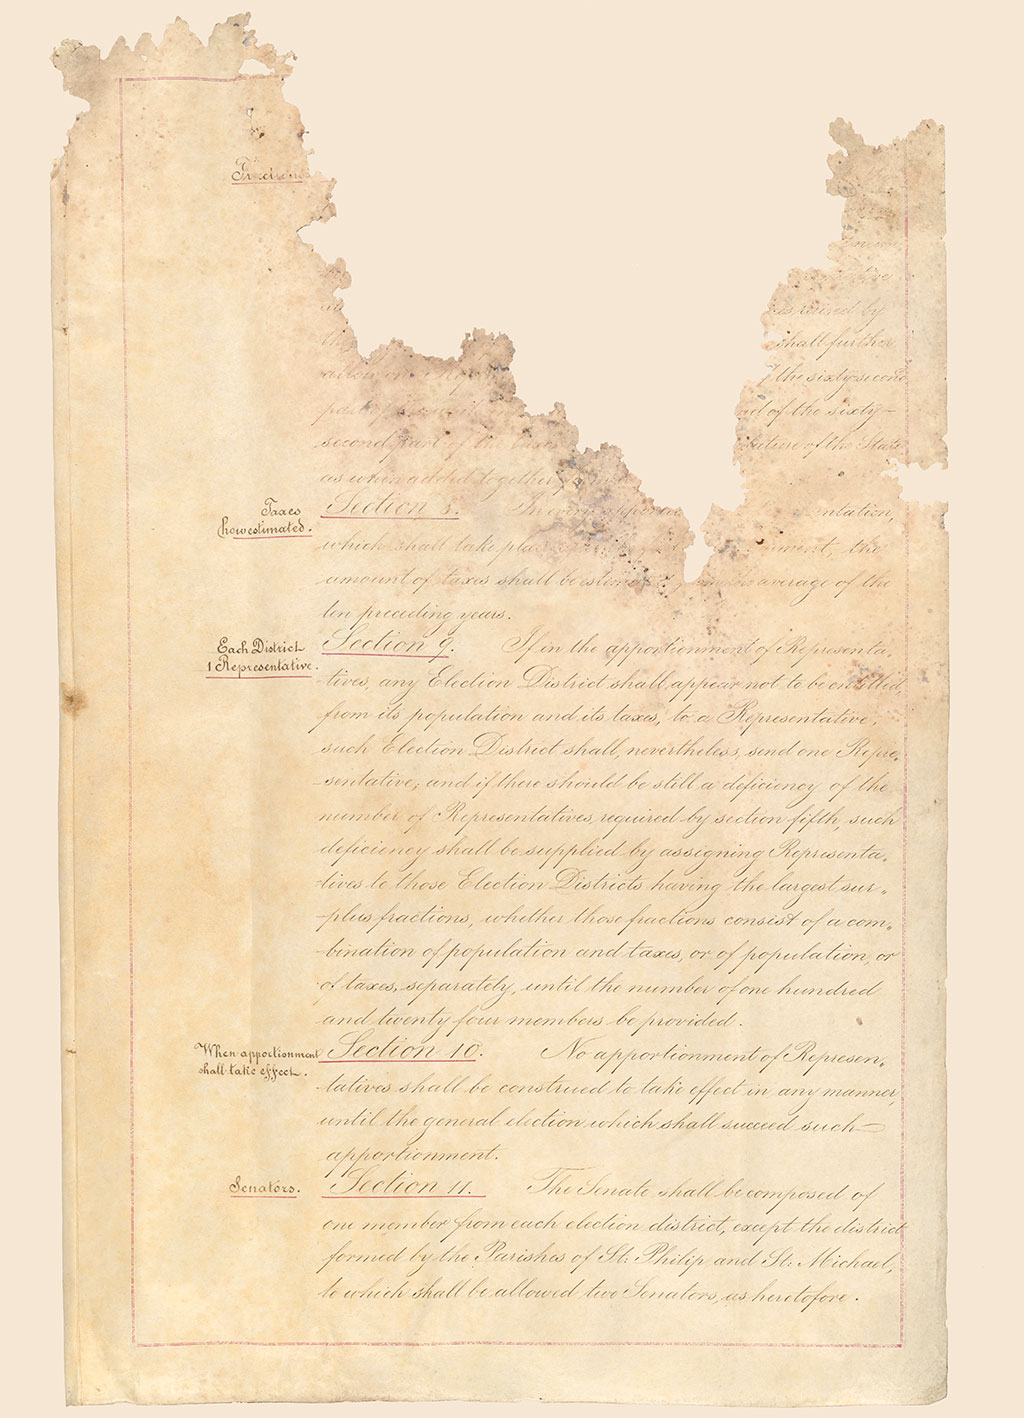 raised by
shall further
allow one Repre
the sixty second
part of
of the sixty-
second part of the taxes
of the State
as when added together
Taxes
how estimated.
Section 8. In every
ntation,
which shall take place
the
amount of taxes shall be average of the
ten preceding years.
Each District
1 Representative.
Section 9. If in the apportionment of Representa-
tives, any Election District shall appear not to be entitled,
from its population and its taxes, to a Representative,
such Election District shall, nevertheless, send one Repre-
sentative; and if there should be still a deficiency of the
number of Representatives, required by section fifth, such
deficiency shall be supplied by assigning Representa-
tives to those Election Districts having the largest sur-
plus fractions, whether those fractions consist of a com-
bination of population and taxes, or of population, or
of taxes, separately, until the number of one hundred
and twenty four members be provided.
When apportionment
shall take effect.
Section 10. No apportionment of Represen-
tatives shall be construed to take effect in any manner,
until the general election which shall succeed such
apportionment.
Senators.
Section 11. The Senate shall be composed of
one member from each election district, except the district
formed by the Parishes of St. Philip and St. Michael,
to which shall be allowed two Senators, as heretofore.